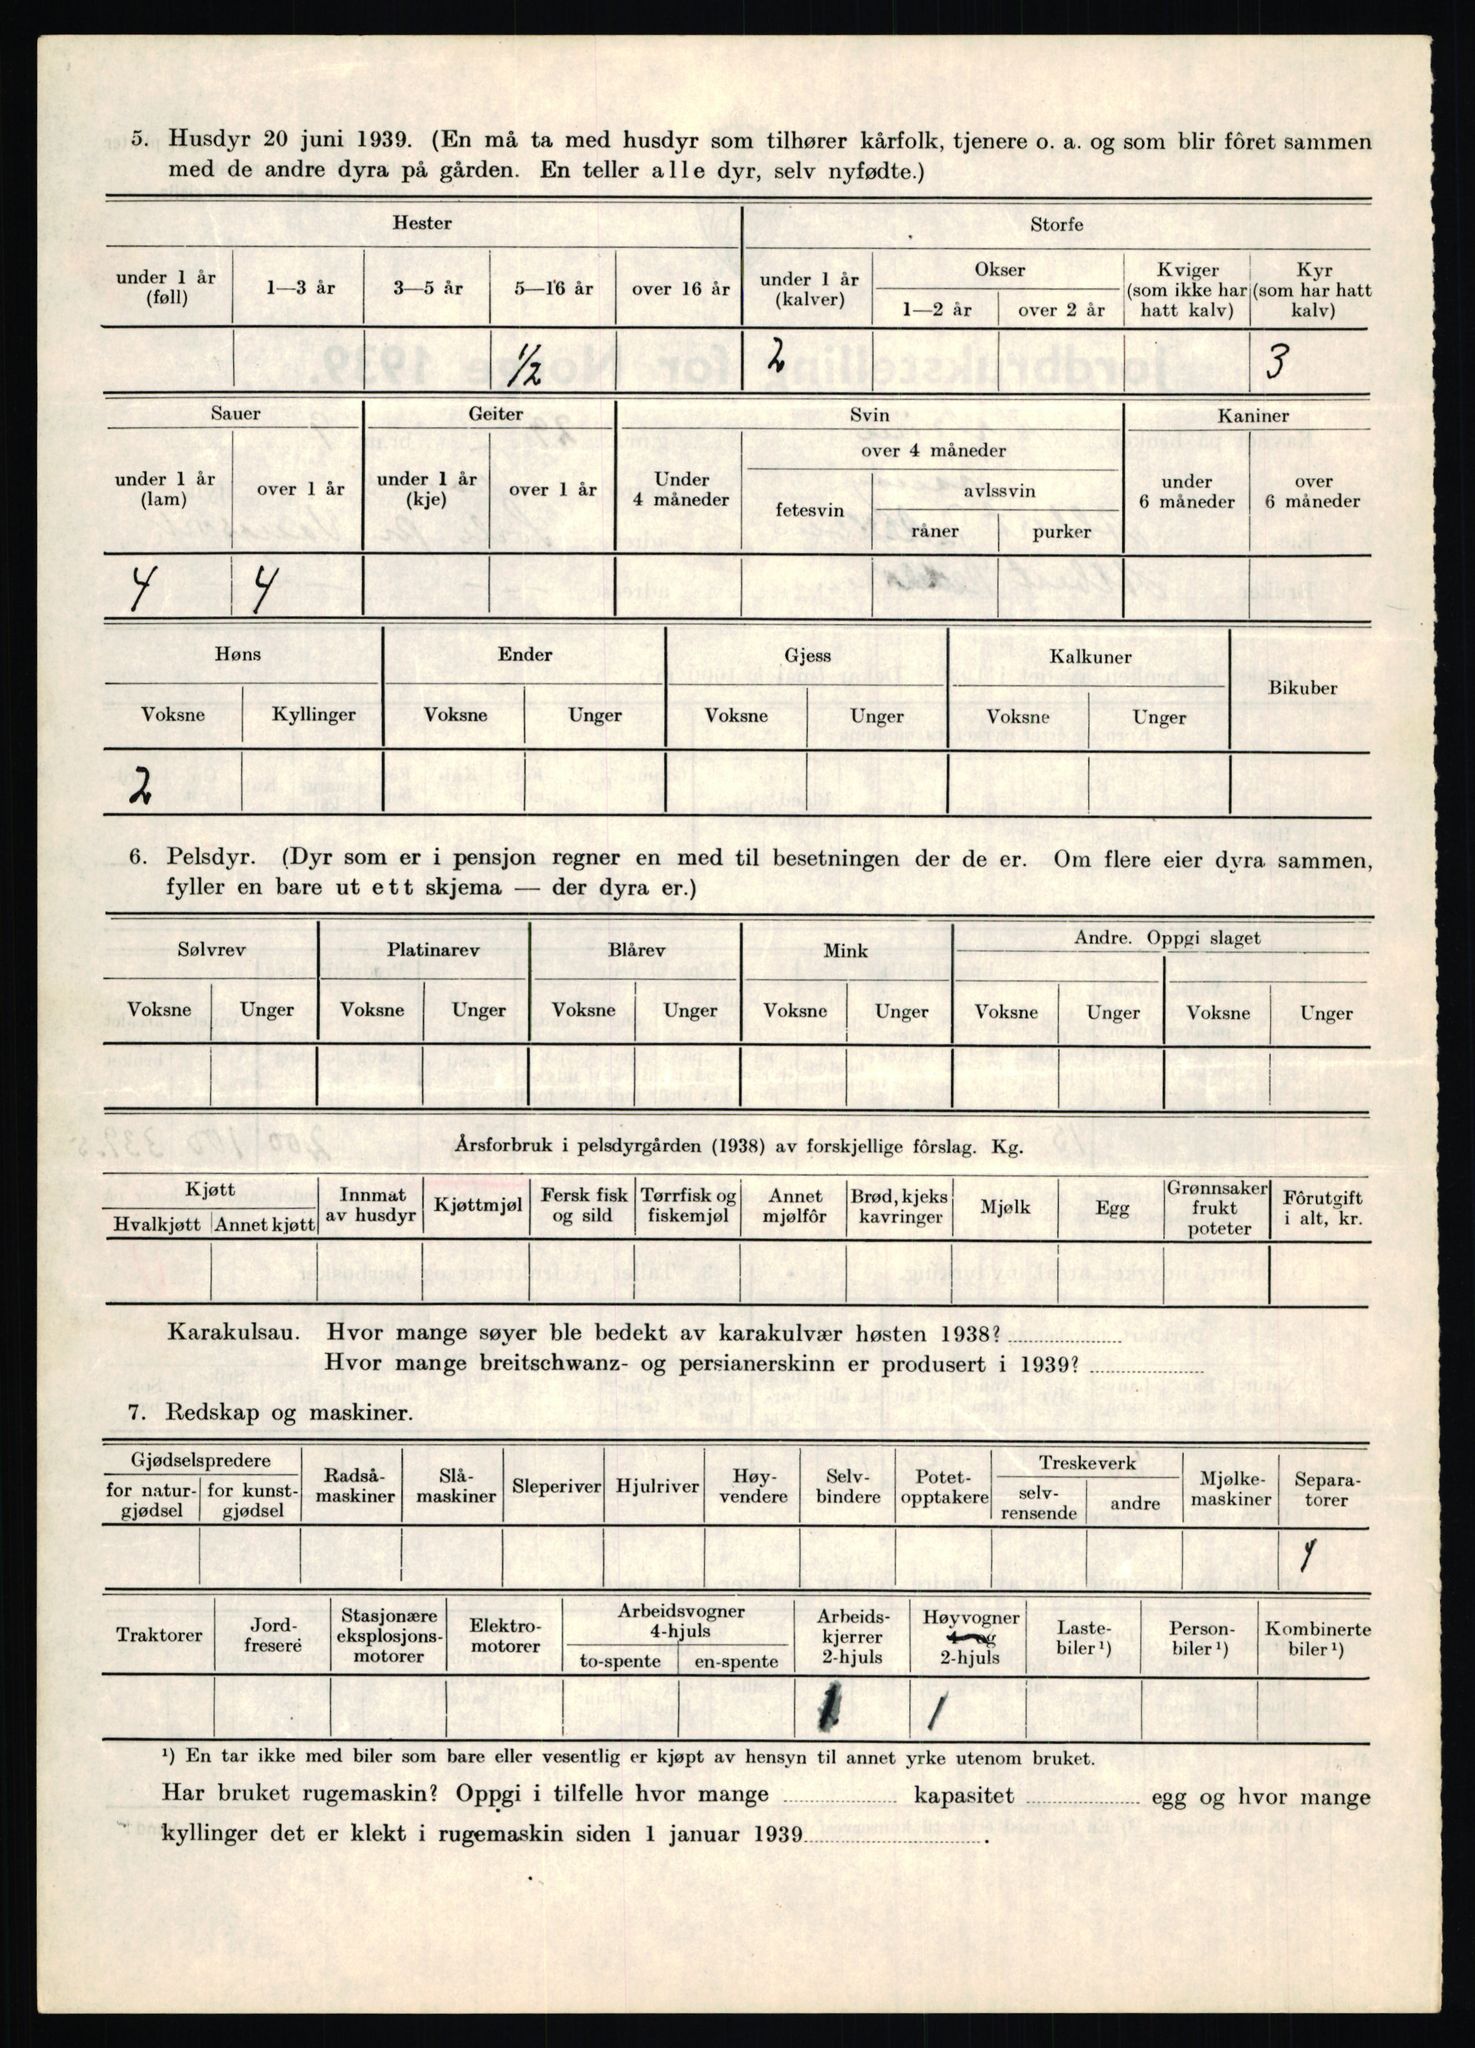 5. Husdyr 20 juni 1939. (En må ta med husdyr som tilhører kårfolk, tjenere o. a. og som blir fôret sammen
med de andre dyra på gården. En teller alle dyr, selv nyfødte.)
Hester Storfe
under 1 år (føll) 1—3 år 3—5 år 5—16 år over 16 år under 1 år (kalver) Okser 1—2 år over 2 år Kviger (som ikke har hatt kalv) Kyr (som har hatt kalv)
1/2 2 3
Sauer Geiter Svin Kaniner
under 1 år (lam) over 1 år under 1 år (kje) over 1 år Under 4 måneder over 4 måneder fetesvin avlssvin råner purker under 6 måneder over 6 måneder
4 4
Høns Ender Gjess Kalkuner Bikuber
Voksne Kyllinger Voksne Unger Voksne Unger Voksne Unger
2
6. Pelsdyr. (Dyr som er i pensjon regner en med til besetningen der de er. Om flere eier dyra sammen,
fyller en bare ut ett skjema — der dyra er.)
Sølvrev Platinarev Blårev Mink Andre. Oppgi slaget
Voksne Unger Voksne Unger Voksne Unger Voksne Unger Voksne Unger Voksne Unger
Årsforbruk i pelsdyrgården (1938) av forskjellige fôrslag. Kg.
Kjøtt Hvalkjøtt Annet kjøtt Innmat av husdyr Kjøttmjøl Fersk fisk og sild Tørrfisk og fiskemjøl Annet mjølfôr Brød, kjeks kavringer Mjølk Egg Grønnsaker frukt poteter Fôrutgift i alt, kr.
Karakulsau. Hvor mange søyer ble bedekt av karakulvær høsten 1938?
Hvor mange breitschwanz- og persianerskinn er produsert i 1939?
7. Redskap og maskiner.
Gjødselspredere for natur- gjødsel for kunst- gjødsel Radså- maskiner Slå- maskiner Sleperiver Hjulriver Høy- vendere Selv- bindere Potet- opptakere Treskeverk selv- rensende andre Mjølke- maskiner Separa- torer
1
Traktorer Jord- fresere Stasjonære eksplosjons- motorer Elektro- motorer Arbeidsvogner 4-hjuls to-spente en-spente Arbeids- kjerrer 2-hjuls Høyvogner 2-hjuls Laste- biler ¹) Person- biler ¹) Kombinerte biler ¹)
1 1
¹) En tar ikke med biler som bare eller vesentlig er kjøpt av hensyn til annet yrke utenom bruket.
Har bruket rugemaskin? Oppgi i tilfelle hvor mange kapasitet egg og hvor mange
kyllinger det er klekt i rugemaskin siden 1 januar 1939 .